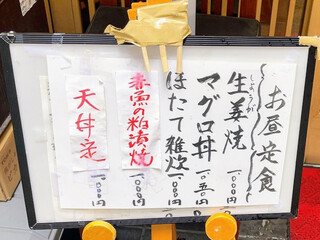 お昼定食
生姜焼 一、〇〇〇円
しょうが
マグロ丼 一、〇五〇円
ほたて雑炊 一、〇〇〇円
赤魚の粕漬焼 一、〇〇〇円
天丼定 一、〇〇〇円